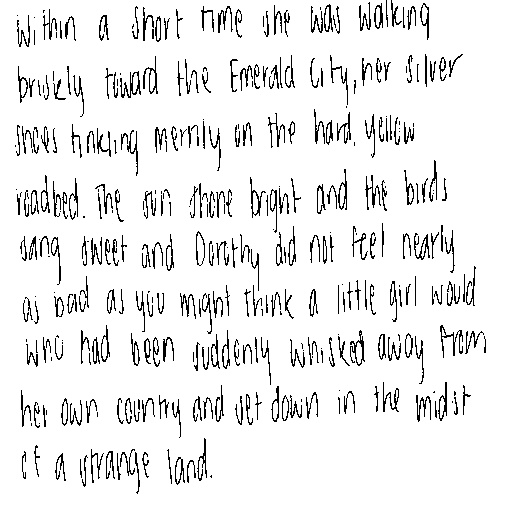 Within a short time she was walking
briskly toward the Emerald City, her silver
shoes tinkling merrily on the hard, yellow
roadbed. The sun shone bright and the birds
sang sweet and Dorothy did not feel nearly
as bad as you might think a little girl would
who had been suddenly whisked away from
her own country and set down in the midst
of a strange land.